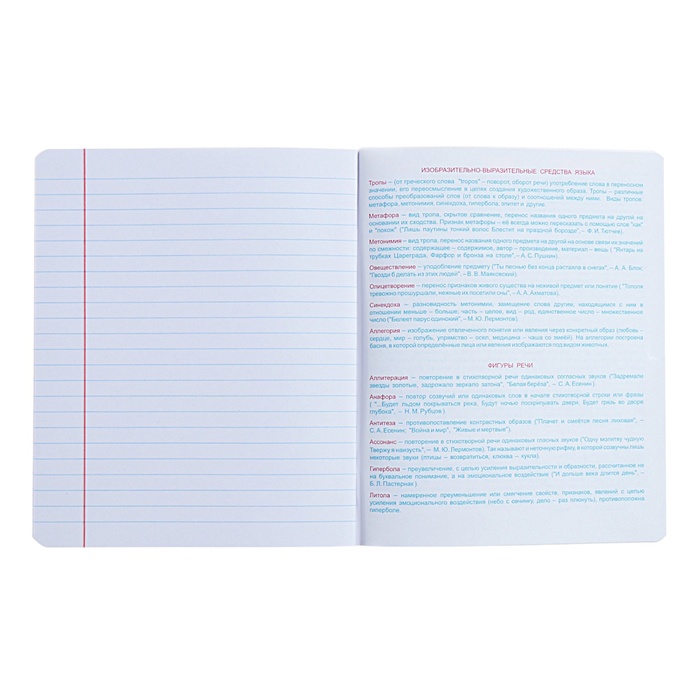 ИЗОБРАЗИТЕЛЬНО-ВЫРАЗИТЕЛЬНЫЕ СРЕДСТВА ЯЗЫКА
Тропы – (от греческого слова "tropos" – поворот, оборот речи) употребление слова в переносном
значении, его переосмысление в целях создания художественного образа. Тропы – различные
способы преобразований слов (от слова к образу) и соотношений между ними. Виды тропов:
метафора, метонимия, синекдоха, гипербола, эпитет и другие.
Метафора – вид тропа, скрытое сравнение, перенос названия одного предмета на другой на
основании их сходства. Признак метафоры – её всегда можно пересказать с помощью слов "как"
и "похож" ("Лишь паутины тонкий волос Блестит на праздной борозде", – Ф.И. Тютчев).
Метонимия – вид тропа, перенос названия одного предмета на другой на основе связи их значений
по смежности: содержащее – содержимое, автор – произведение, материал – вещь ( "Янтарь на
трубках Цареграда, Фарфор и бронза на столе", – А.С. Пушкин).
Овеществление – уподобление предмету ("Ты песнью без конца растаяла в снегах", – А. А. Блок;
"Гвозди б делать из этих людей", – В. В. Маяковский).
Олицетворение – перенос признаков живого существа на неживой предмет или понятие ( "Тополя
тревожно прошуршали, нежные их посетили сны", – А. А. Ахматова).
Синекдоха – разновидность метонимии, замещение слова другим, находящимся с ним в
отношении меньше – больше, часть – целое, вид – род, единственное число – множественное
число ("Белеет парус одинокий", – М. Ю. Лермонтов).
Аллегория – изображение отвлеченного понятия или явления через конкретный образ (любовь –
сердце, мир – голубь, упрямство – осел, медицина – чаша со змеёй). На аллегории построена
басня, в которой определённые лица или явления изображаются под видом животных.
ФИГУРЫ РЕЧИ
Аллитерация – повторение в стихотворной речи одинаковых согласных звуков ("Задремали
звезды золотые, задрожало зеркало затона", "Белая берёза", – С. А. Есенин ).
Анафора – повтор созвучий или одинаковых слов в начале стихотворной строки или фразы
( "...Будет льдом покрываться река, Будут ночью поскрипывать двери, Будет грязь во дворе
глубока", – Н. М. Рубцов ).
Антитеза – противопоставление контрастных образов ("Плачет и смеётся песня лиховая", –
С. А. Есенин; "Война и мир", "Живые и мертвые").
Ассонанс – повторение в стихотворной речи одинаковых гласных звуков ("Одну молитву чудную
Твержу я наизусть", – М. Ю. Лермонтов). Так называют и неточную рифму, в которой созвучны лишь
некоторые звуки (птицы – возвратиться, клюква – кукла).
Гипербола – преувеличение, с целью усиления выразительности и образности, рассчитанное не
на буквальное понимание, а на эмоциональное воздействие ("И дольше века длится день", –
Б. Л. Пастернак ).
Литота – намеренное преуменьшение или смягчение свойств, признаков, явлений с целью
усиления эмоционального воздействия (небо с овчинку, дело – раз плюнуть), противоположна
гиперболе.